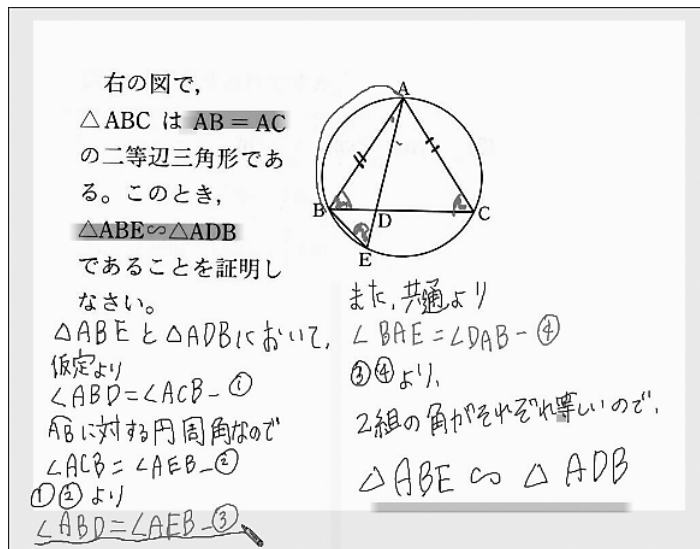 右の図で,
△ABC は AB = AC
の二等辺三角形であ
る。このとき,
△ABE∽△ADB
であることを証明し
なさい。
A
B
D
C
E
△ABE と △ADBにおいて,
仮定より
∠ABD=∠ACB-①
ABに対する円周角なので
∠ACB=∠AEB-②
①②より
∠ABD=∠AEB-③
また,共通より
∠BAE=∠DAB-④
③④より,
2組の角がそれぞれ等しいので,
△ABE ∽ △ADB